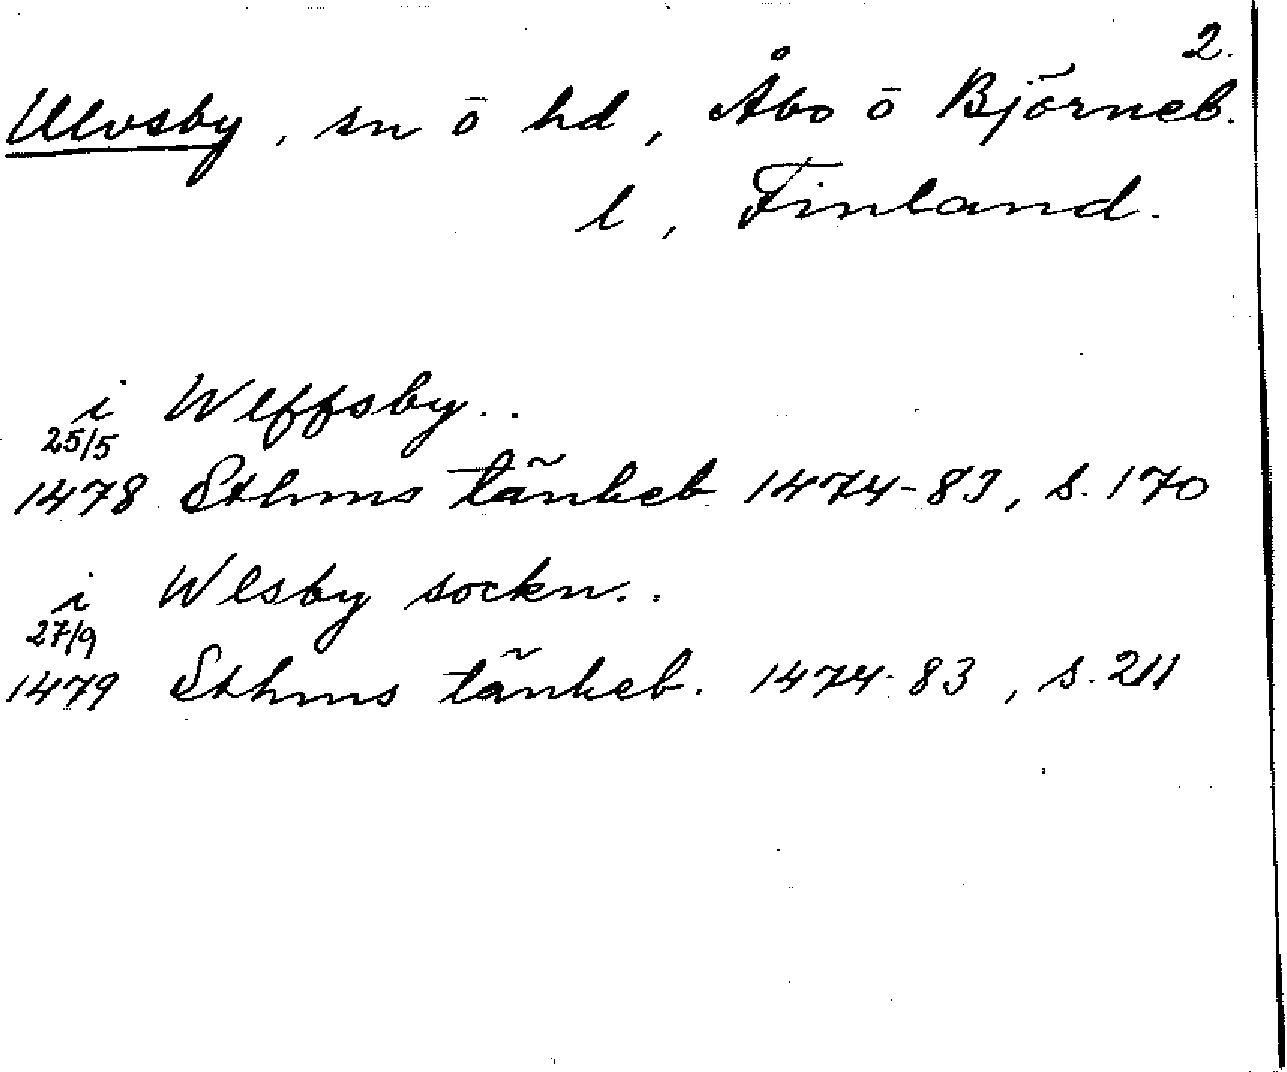 2.
Ulvsby, sn ō hd, Åbo ō Björneb.
l, Finland.
i Wlffsby..
25/5
1478 Sthms tänkeb 1474-83, s. 170
i Wlsby sockn..
27/9
1479 Sthms tänkeb. 1474-83, s. 211